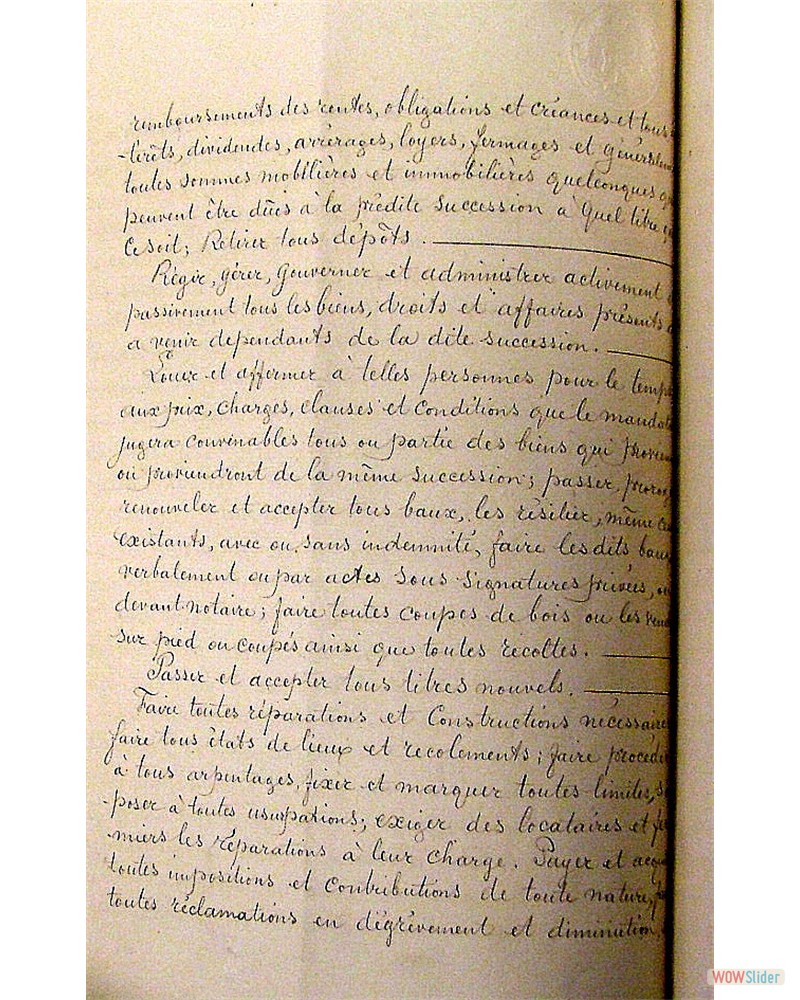 remboursements des rentes, obligations et créances et tous
-térêts, dividendes, arrérages, loyers, fermages et générale
toutes sommes mobilières et immobilières quelconques q
peuvent être dûes à la prédite succession à quel titre q
ce soit; Retirer tous dépôts.
Régir, gérer, gouverner et administrer activement
passivement tous les biens, droits et affaires présents
a venir dependants de la dite succession.
Louer et affermer à telles personnes pour le temps
aux prix, charges, clauses et conditions que le mandat
jugera convenables tous ou partie des biens qui provien
ou proviendront de la même succession; passer, prorog
renouveler et accepter tous baux, les résilier, même ce
existants, avec ou sans indemnité, faire les dits baux
verbalement ou par actes sous signatures privées, ou
devant notaire; faire toutes coupes de bois ou les vend
sur pied ou coupés ainsi que toutes récoltes.
Passer et accepter tous titres nouvels.
Faire toutes réparations et Constructions nécessaire
faire tous états de lieux et recolements; faire procéde
à tous arpentages, fixer et marquer toutes limites, s'
-poser à toutes usurpations; exiger des locataires et fer
miers les réparations à leur charge. Payer et acqu
toutes impositions et contributions de toute nature,
toutes réclamations en dégrèvement et diminution,
WOWSlider